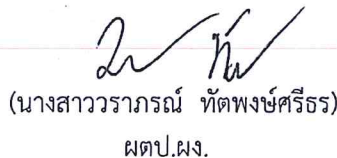 (นางสาววราภรณ์ ทัตพงษ์ศรีธร)
ผตป.ผง.